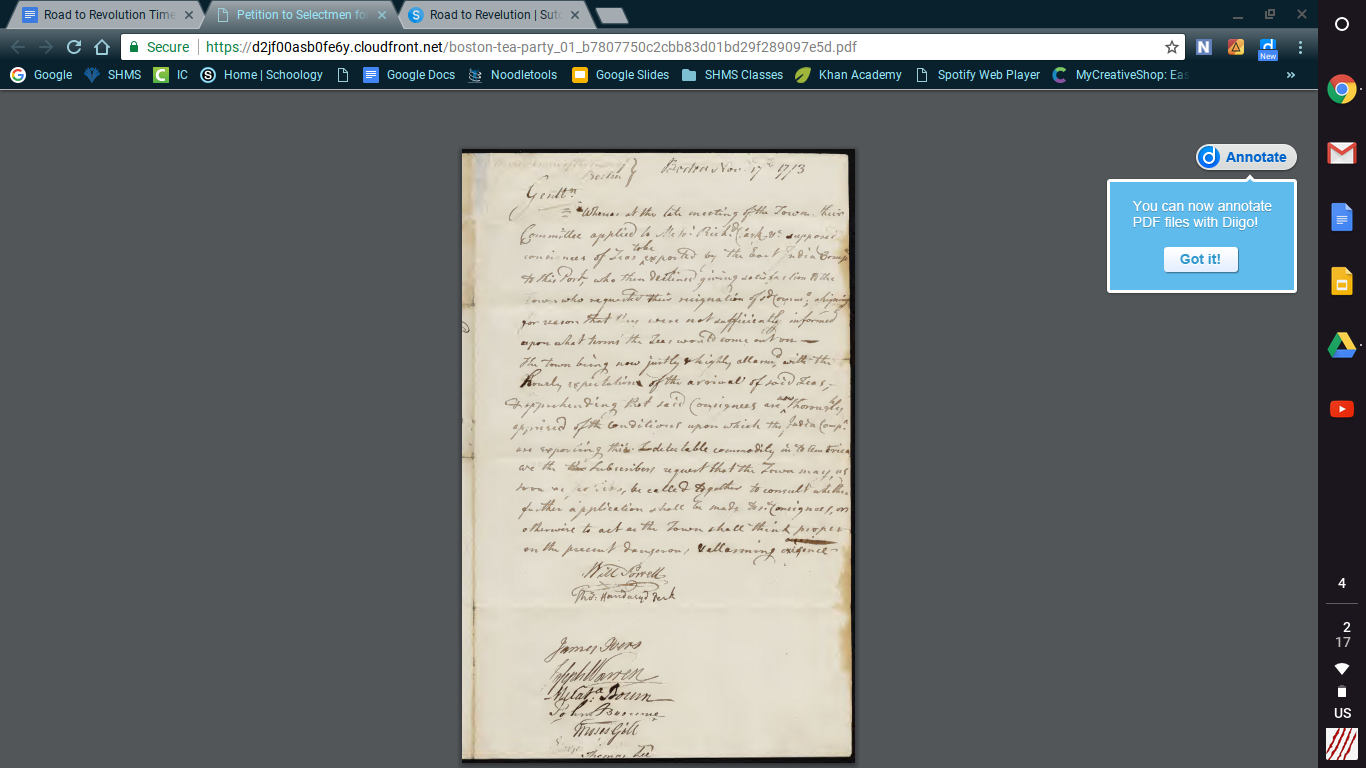 Road to Revolution Time
Petition to Selectmen fo
Road to Revelution | Suto
Secure
https://d2jf00asb0fe6y.cloudfront.net/boston-tea-party_01_b7807750c2cbb83d01bd29f289097e5d.pdf
Google
SHMS
IC
Home | Schoology
Google Docs
Noodletools
Google Slides
SHMS Classes
Khan Academy
Spotify Web Player
MyCreativeShop: Eas
»
New
Annotate
You can now annotate
PDF files with Diigo!
Got it!
Boston Boston Nov. 17th 1773
Gentln
Whereas at the late meeting of the Town their
Committee applied to Messrs Richd Clark &c supposed
consignees of Teas to be exported by the East India Comp
to this Port, who then declined giving satisfaction to the
Town who requested their resignation of sd Consignt, assigning
for reason that they were not sufficiently informed
upon what terms the Teas would come out on —
The Town being now justly & highly allarmd with the
hourly expectation of the arrival of said Teas,
& apprehending that said Consignees are now thoroughly
apprized of the conditions upon which the India Compy
are exporting this detestable commodity into America
we the Subscribers request that the Town may, as
soon as possible, be called together to consult whether
further application shall be made to sd Consignees, or
otherwise to act as the Town shall think proper
on the present dangerous & allarming exigence
Will Powell
Tho: Handasyd Peck
James Ivers
Joseph Warren
Melat.a Bourn
John Bourne
Moses Gill
Thomas Lee
4
2
17
US